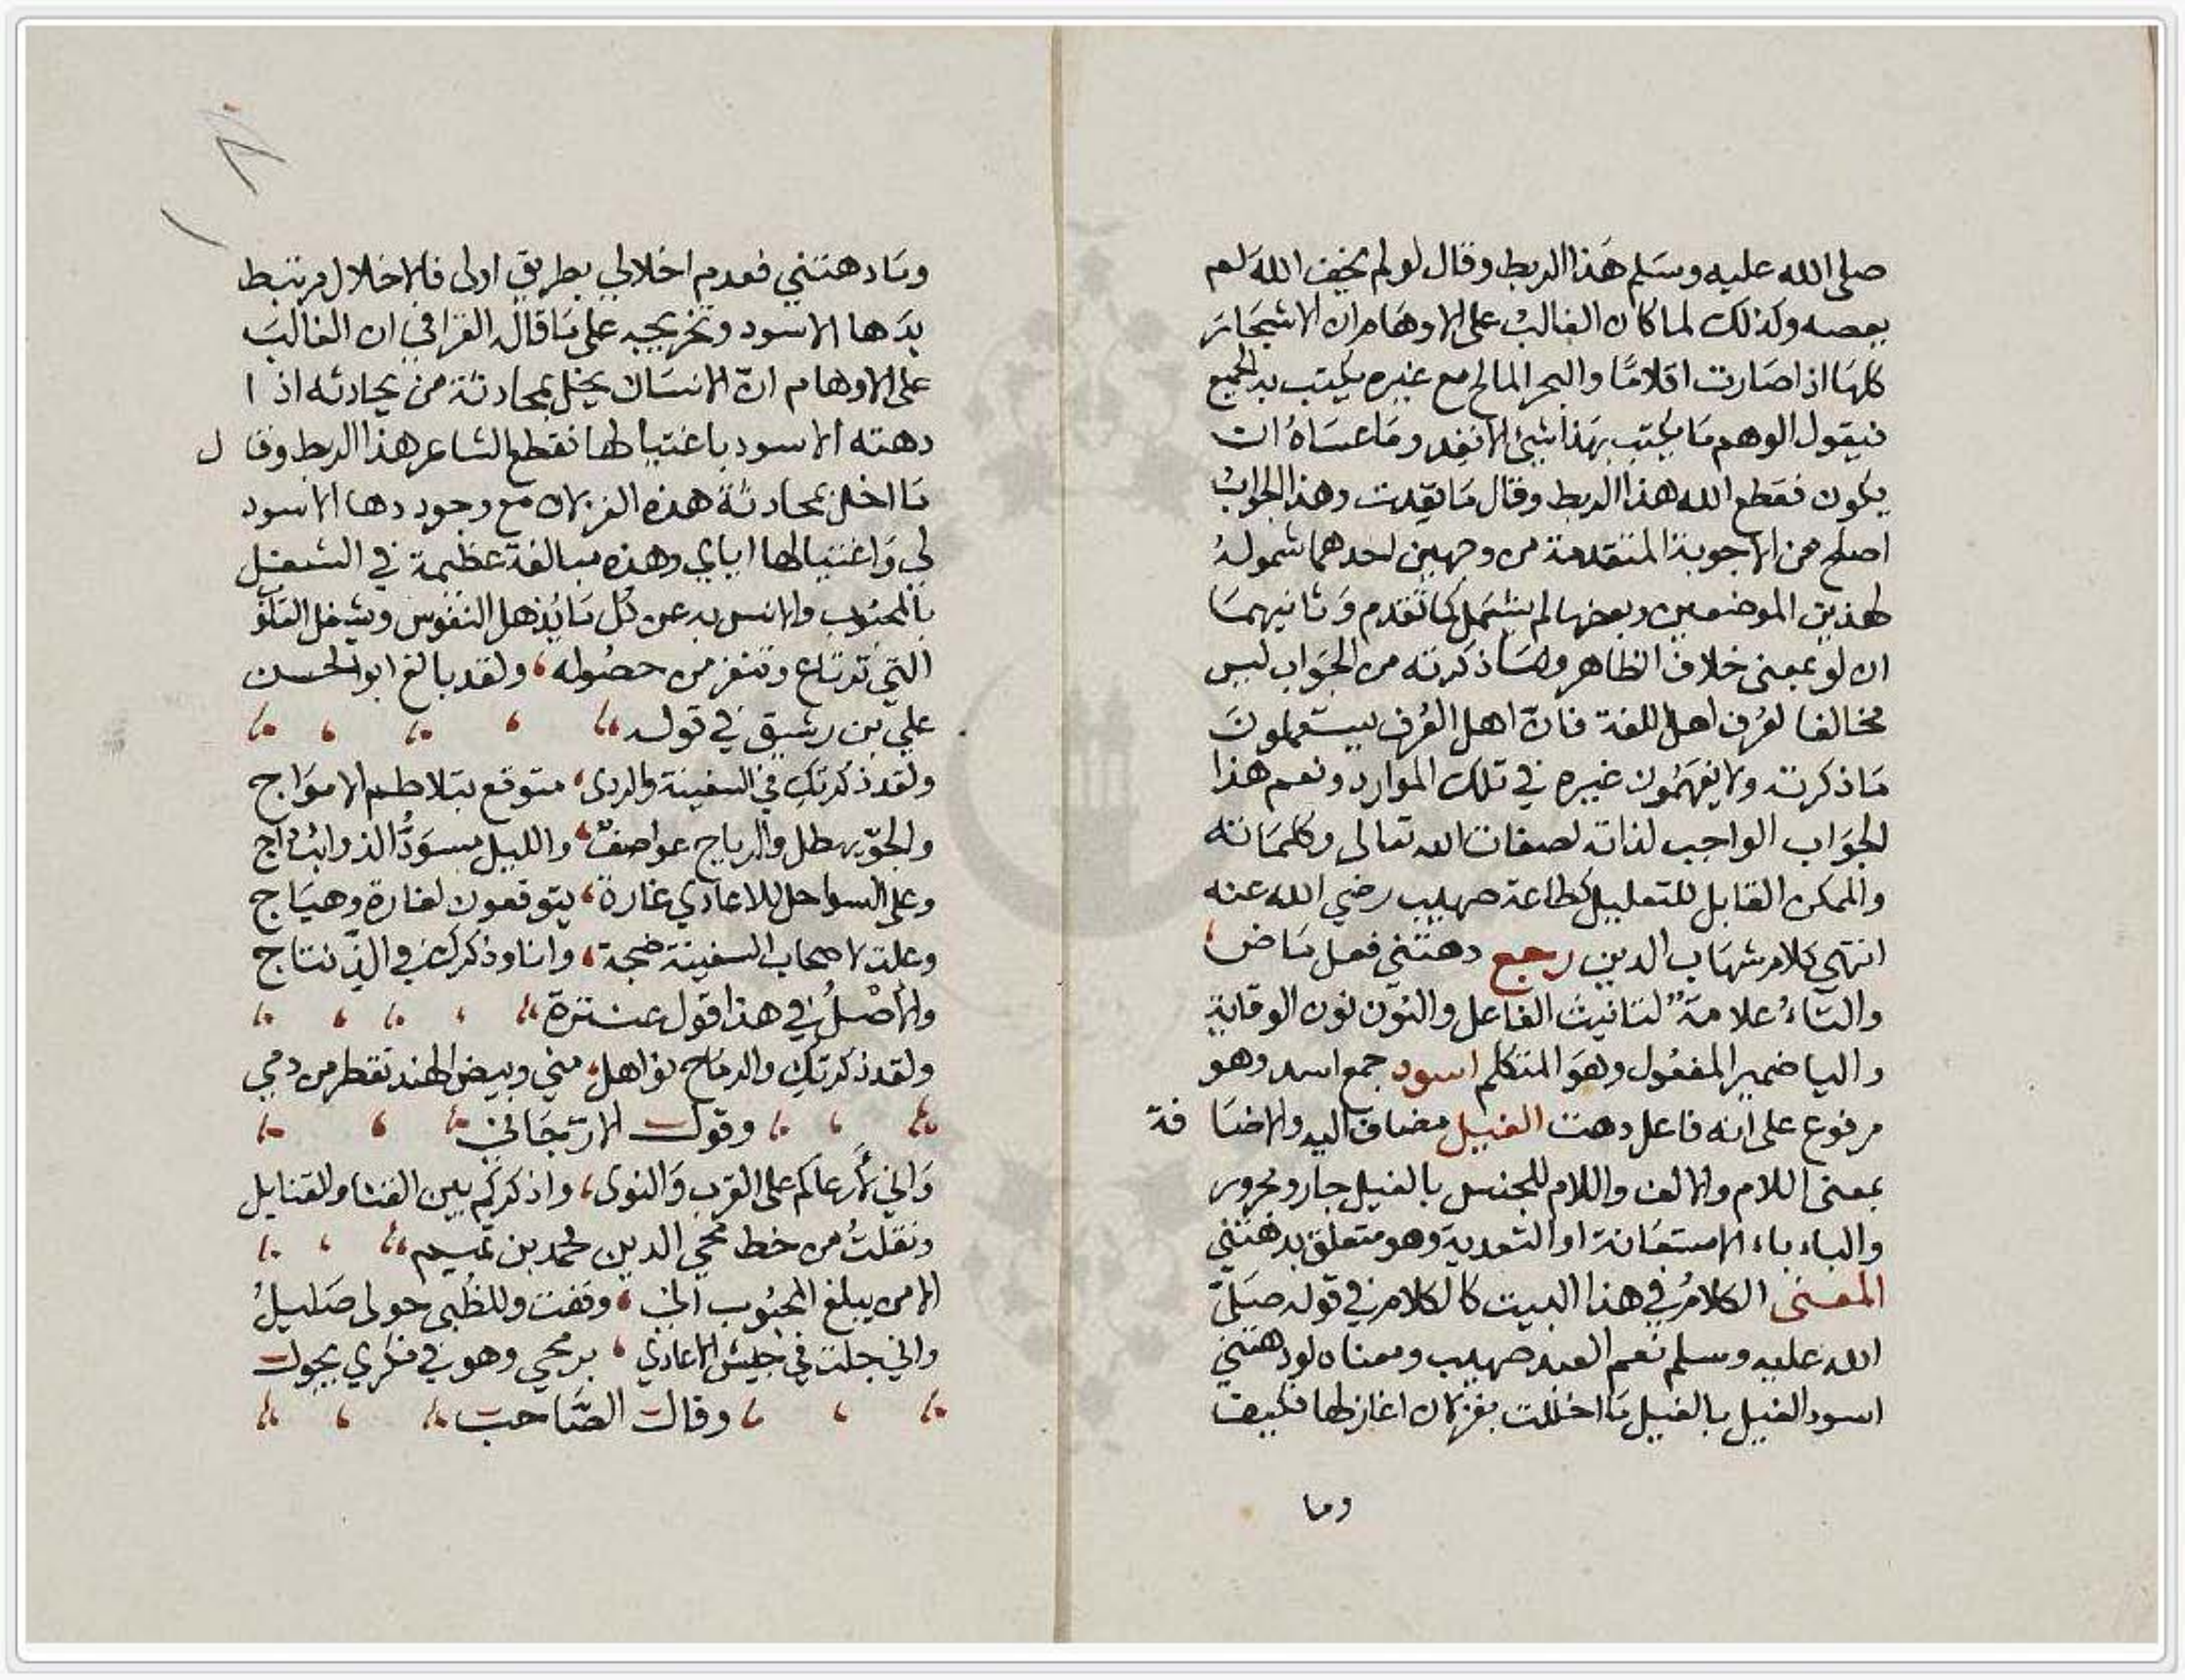 صلى الله عليه وسلم هذا الربط وقال لو لم يخف الله لم
يعصه وكذلك لما كان الغالب على الاوهام ان الاشجار
كلها اذا صارت اقلامًا والبحر المالح مع غيره يكتب به الجميع
فيقول الوهم ما يكتب بهذا شيئ الا نفد وما عساه ان
يكون فقطع الله هذا الربط وقال ما نفدت وهذا الجواب
اصلح من الاجوبة المتقدمة من وجهين احدهما شموله
لهذين الموضعين وبعضها لم يشمل كما تقدم وثانيهما
ان لو بمعنى خلاف الظاهر وما ذكرته من الجواب ليس
مخالفا لعرف اهل اللغة فان اهل العرف يستعملون
ما ذكرته ولا يفهمون غيره في تلك الموارد ونعم هذا
الجواب الواجب لذاته لصفات الله تعالى وكلماته
والممكن القابل للتعليل كطاعة صهيب رضي الله عنه
انتهى كلام شهاب الدين رجع دهتني فعل ماض
والتاء علامة لتانيث الفاعل والنون نون الوقاية
واليا ضمير المفعول وهو المتكلم اسود جمع اسد وهو
مرفوع على انه فاعل دهت الغيل مضاف اليه والاضافة
بمعنى اللام والالف واللام للجنس بالغيل جار ومجرور
والباء باء الاستعانة او التعدية وهو متعلق بدهتني
المعنى الكلام في هذا البيت كالكلام في قوله صلى
الله عليه وسلم نعم العبد صهيب ومعناه لو دهتني
اسود الغيل بالغيل ما اخللت بغزلان اغازلها فكيف
وما
١٨٠
وما دهتني فعدم اخلالي بطريق اولى فالاخلال مرتبط
بدها الاسود وتخريجه على ما قاله القرافي ان الغالب
على الاوهام ان الانسان يخل بمحادثة من يحادثه اذا
دهته الاسود باغتيالها فقطع الشاعر هذا الربط وقال
ما اخل بمحادثة هذه الغزلان مع وجود دها الاسود
لي واغتيالها اياي وهذه مبالغة عظيمة في الشغل
بالمحبوب والانس به عن كل ما يذهل النفوس ويشغل القلوب
التي ترتاع وتنفر من حصوله ولقد بالغ ابو الحسن
علي بن رشيق في قوله
ولقد ذكرتك في السفينة والردى متوقع بتلاطم الامواج
والجو يهطل والرياح عواصف والليل مسود الذوائب داج
وعلى السواحل للاعادي غارة يتوقعون لغارة وهياج
وعلت لاصحاب السفينة ضجة وانا وذكرك في الذ تناج
والاصل في هذا قول عنترة
ولقد ذكرتك والرماح نواهل مني وبيض الهند تقطر من دمي
وقول الارجاني
واني لارعاكم على القرب والنوى واذكركم بين القنا والقنابل
ونقلت من خط محيي الدين محمد بن تميم
الا من يبلغ المحبوب اني وقفت وللظبى حولى صليل
واني جلت في جيش الاعادي برمحي وهو في فكري يجول
وقال الصاحب